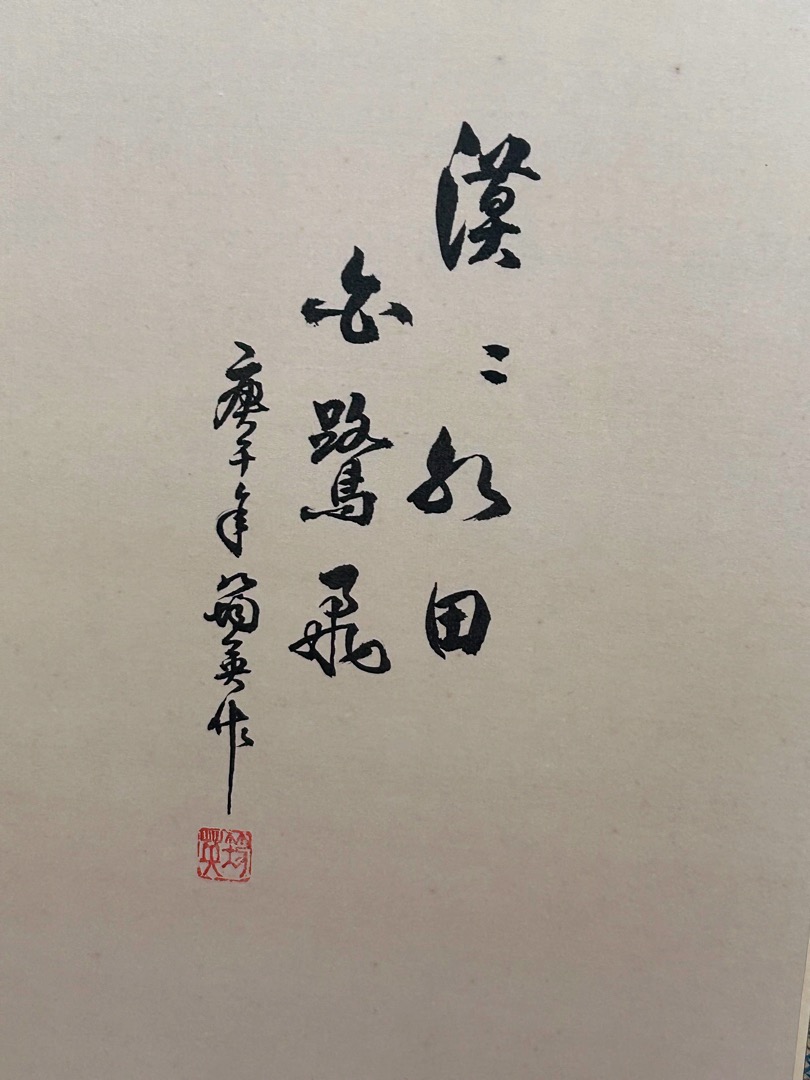 漠〻水田
白鷺飛
庚午年筠英作
筠英